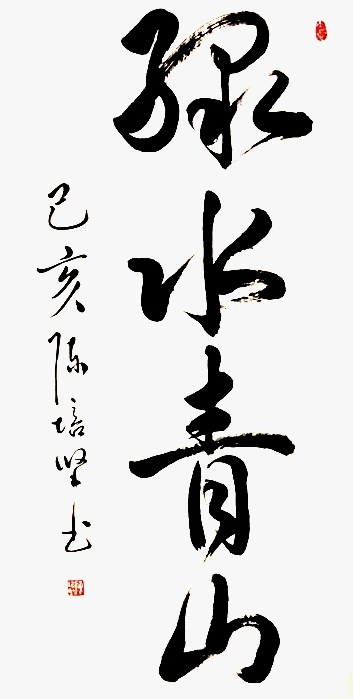 绿水青山
己亥陈培坚书